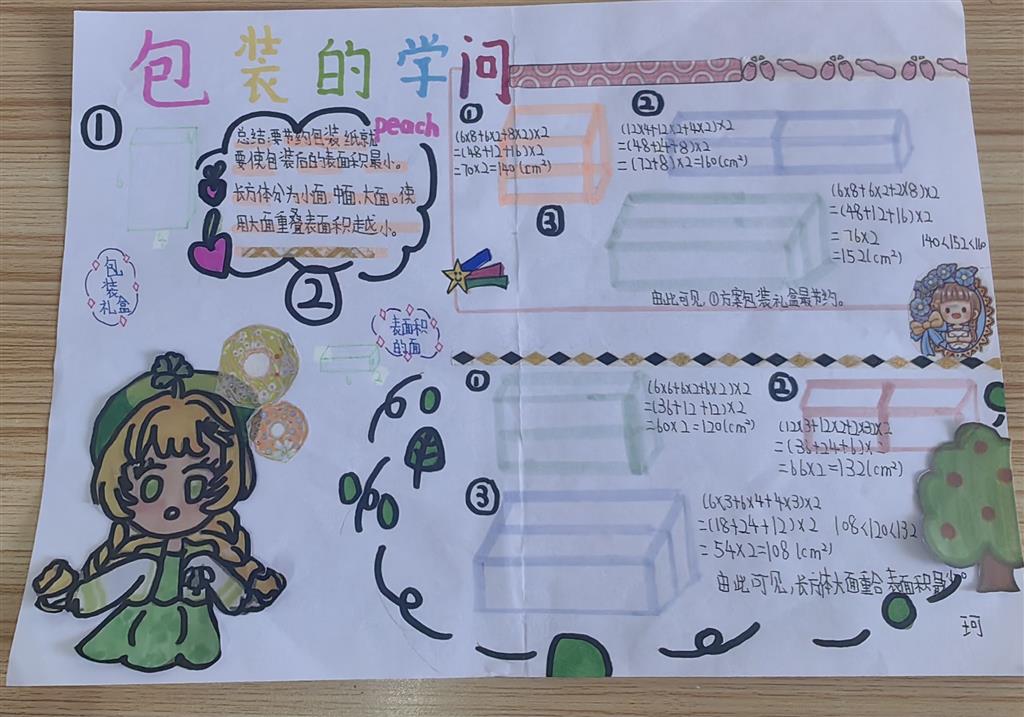 包装的学问
①
peach
总结:要节约包装纸就
要使包装后的表面积最小。
长方体分为小面,中面,大面。使
用大面重叠表面积走越小。
包
装
礼
盒
②
表面积
的面
①
(6x8+6x2+8x2)x2
=(48+12+16)x2
=70x2=140(cm²)
②
(12x4+12x2+4x2)x2
=(48+24+8)x2
=(72+8)x2=160(cm²)
③
(6x8+6x2+2x8)x2
=(48+12+16)x2
=76x2
=152(cm²)
140<152<160
由此可见①方案包装礼盒最节约。
①
(6x6+6x2+6x2)x2
=(36+12+12)x2
=60x2=120(cm²)
②
(12x3+12x2+2x3)x2
=(36+24+6)x2
=66x2=132(cm²)
③
(6x3+6x4+4x3)x2
=(18+24+12)x2
=54x2=108(cm²)
108<120<132
由此可见,长方体大面重合表面积最小。
珂